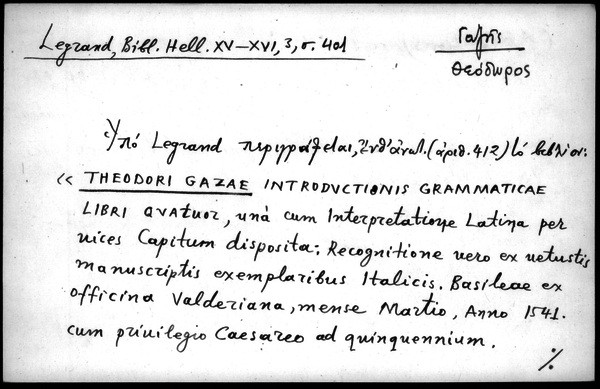 Legrand, Bibl. Hell. XV–XVI, 3, σ. 401
Γαζῆς
Θεόδωρος
Ὑπό Legrand περιγράφεται, ἔνθ' ἀνωτ. (ἀριθ. 412) τό βιβλίον:
« THEODORI GAZAE INTRODVCTIONIS GRAMMATICAE
LIBRI QVATUOR, unà cum Interpretatione Latina per
uices Capitum disposita: Recognitione uero ex uetustis
manuscriptis exemplaribus Italicis. Basileae ex
officina Valderiana, mense Martio, Anno 1541.
cum priuilegio Caesareo ad quinquennium.
·/.